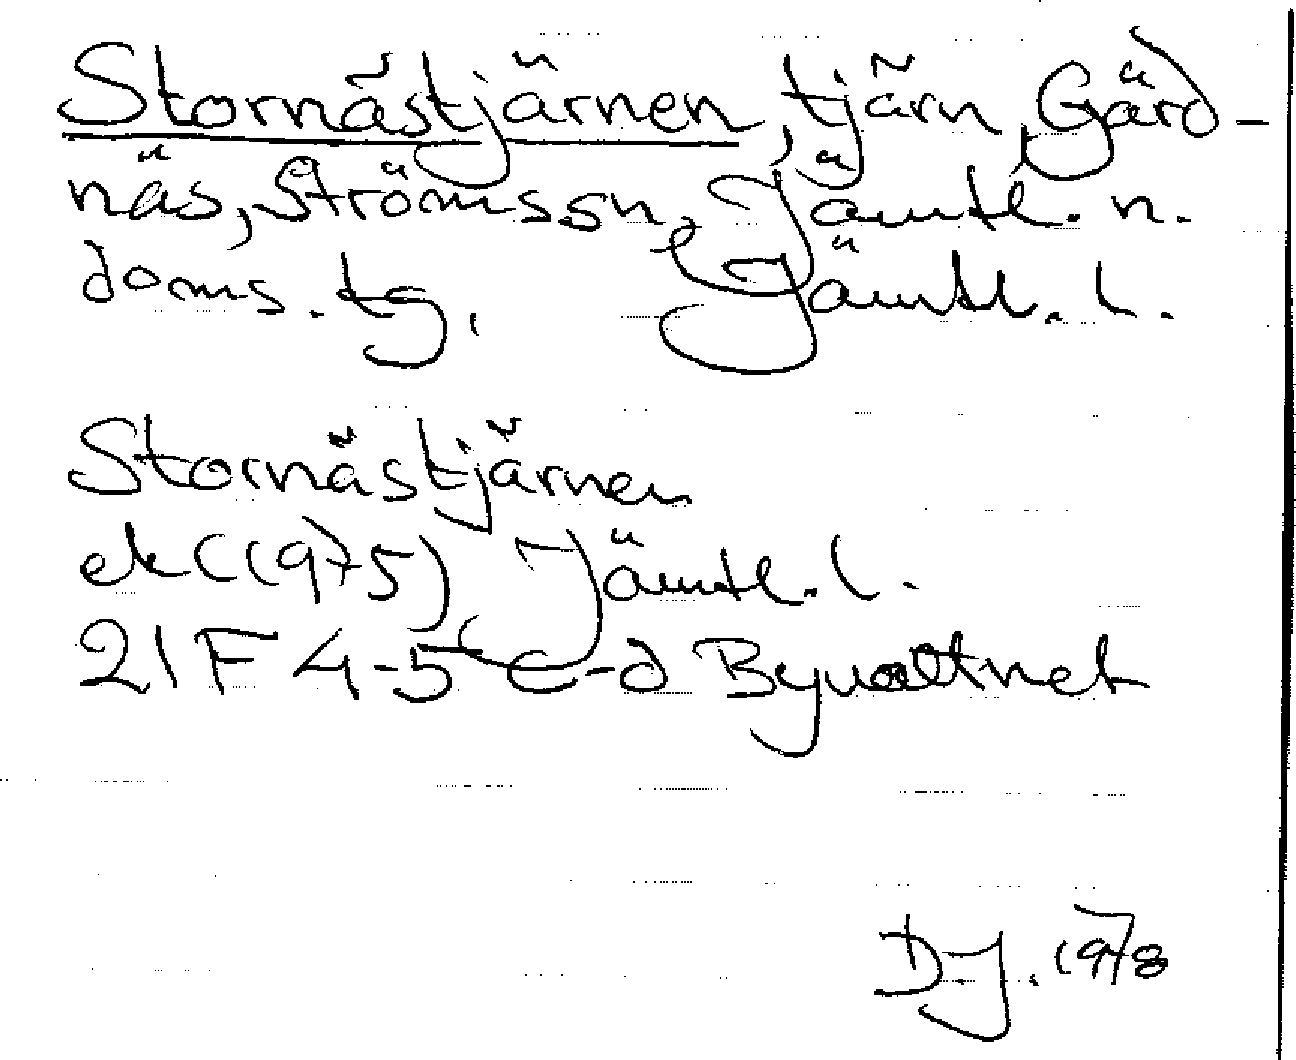 Stornästjärnen, tjärn, Gärd-
näs, Ströms sn, Jämtl. n.
doms. tg, Jämtl. l.
Stornästjärnen
ek (1975) Jämtl. l.
21 F 4-5 c-d Byvattnet
DJ. 1978